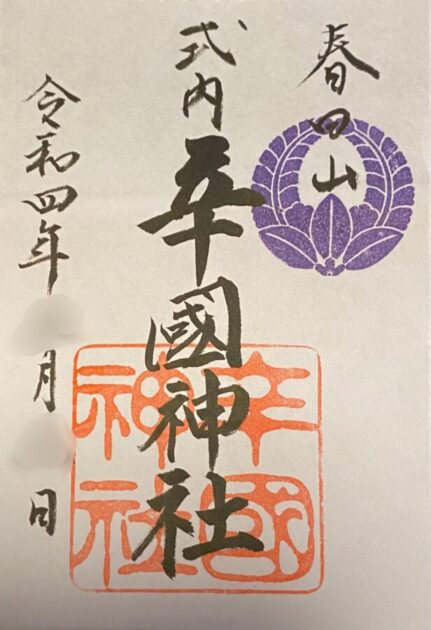 春日山
式内 辛國神社
令和四年 月 日
辛國
神社